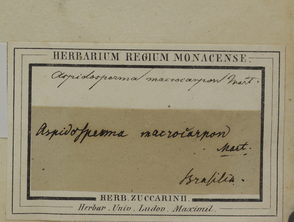 HERBARIUM REGIUM MONACENSE.
Aspidosperma macrocarpon Mart.
Aspidosperma macrocarpon
Mart.
Brasilia.
HERB. ZUCCARINII.
Herbar. Univ. Ludov. Maximil.